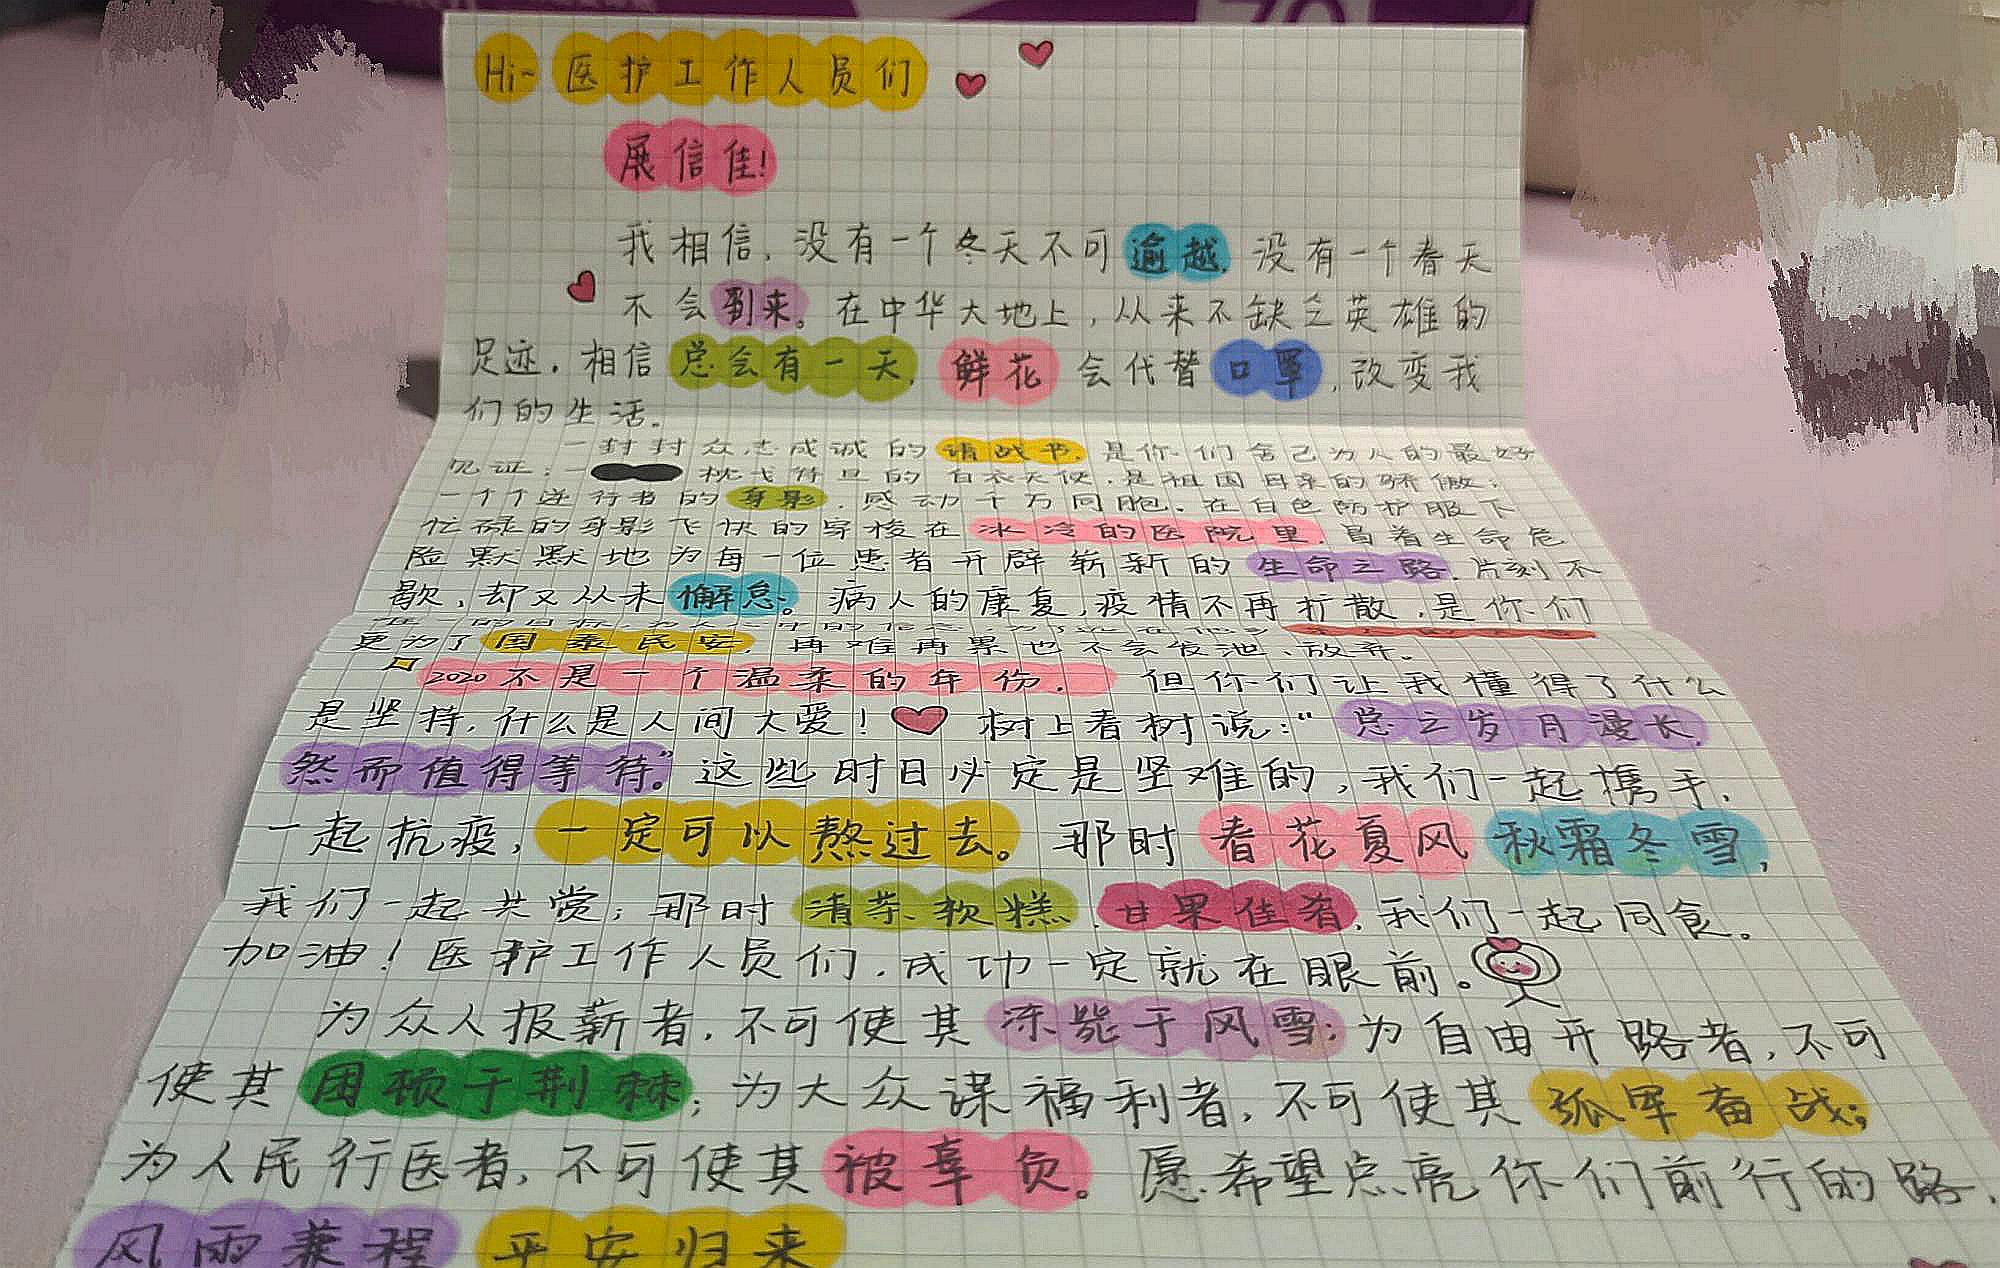 Hi~医护工作人员们
展信佳!
我相信,没有一个冬天不可逾越,没有一个春天
不会到来。在中华大地上,从来不缺乏英雄的
足迹。相信总会有一天,鲜花会代替口罩,改变我
们的生活。
一封封众志成诚的请战书,是你们舍己为人的最好
见证;一 枕戈待旦的白衣天使,是祖国母亲的骄傲;
一个个逆行者的身影,感动千万同胞。在白色防护服下
忙碌的身影飞快的穿梭在冰冷的医院里,冒着生命危
险默默地为每一位患者开辟崭新的生命之路,片刻不
歇,却又从未懈怠。病人的康复,疫情不再扩散,是你们
更为了国泰民安,再难再累也不会放弃。
2020不是一个温柔的年份,但你们让我懂得了什么
是坚持,什么是人间大爱!树上春树说:“总之岁月漫长,
然而值得等待。”这些时日必定是坚难的,我们一起携手,
一起抗疫,一定可以熬过去。那时春花夏风秋霜冬雪,
我们一起共赏;那时清茶、软糕、甘果佳肴,我们一起同食。
加油!医护工作人员们,成功一定就在眼前。
为众人报薪者,不可使其冻毙于风雪;为自由开路者,不可
使其困顿于荆棘;为大众谋福利者,不可使其孤军奋战;
为人民行医者,不可使其被辜负。愿希望点亮你们前行的路,
风雨兼程 平安归来